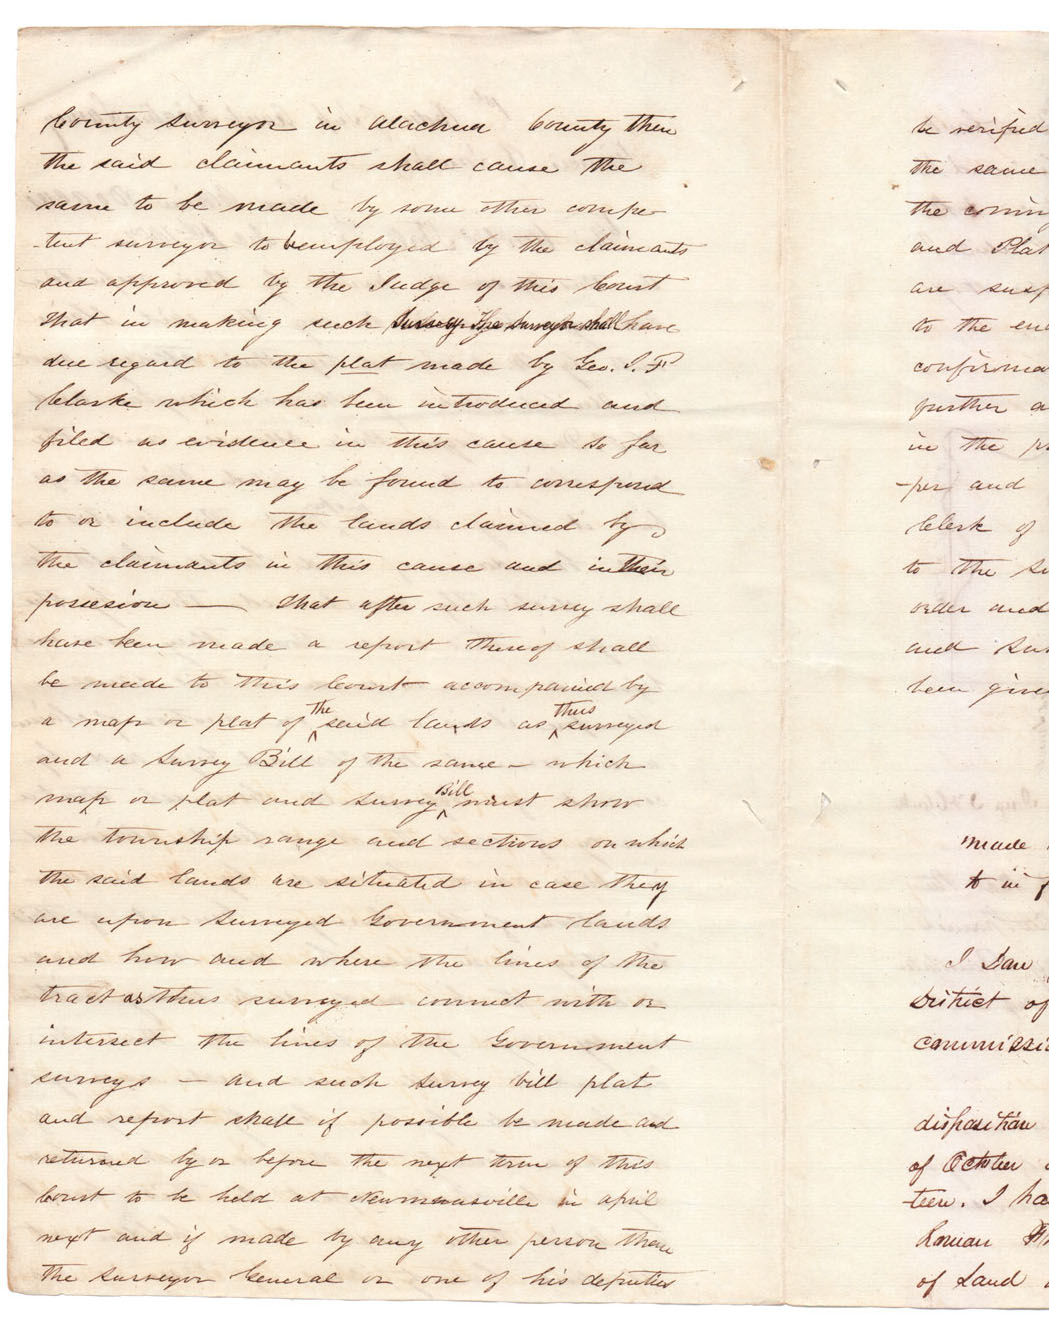 County Surveyor in Alachua County then
the said claimants shall cause the
same to be made by some other compe-
-tent surveyor to be employed by the claimants
and approved by the Judge of this Court
That in making such Survey The Surveyor shall have
due regard to the plat made by Geo. I. F
Clarke which has been introduced and
filed as evidence in this cause so far
as the same may be found to correspond
to or include the lands claimed by
the claimants in this cause and in their
possesion — That after such survey shall
have been made a report thereof shall
be made to this Court accompanied by
a map or plat of the said lands as thus surveyed
and a Survey Bill of the same — which
map or plat and survey Bill must show
the township range and sections on which
the said lands are situated in case they
are upon surveyed Government lands
and how and where the lines of the
tract as thus surveyed connect with or
intersect the lines of the Government
surveys — and such survey bill plat
and report shall if possible be made and
returned by or before the next term of this
Court to be held at Newnansville in april
next and if made by any other person than
the surveyor General or one of his deputies
be verified
the same
the coming
and Plat
are susp
to the end
confirma
further a
in the pr
-per and
Clerk of
to the Su
order and
and Sur
been given
made
to in f
I Dan
District of
commissi
disposition
of October
-teen. I ha
Roman
of Land